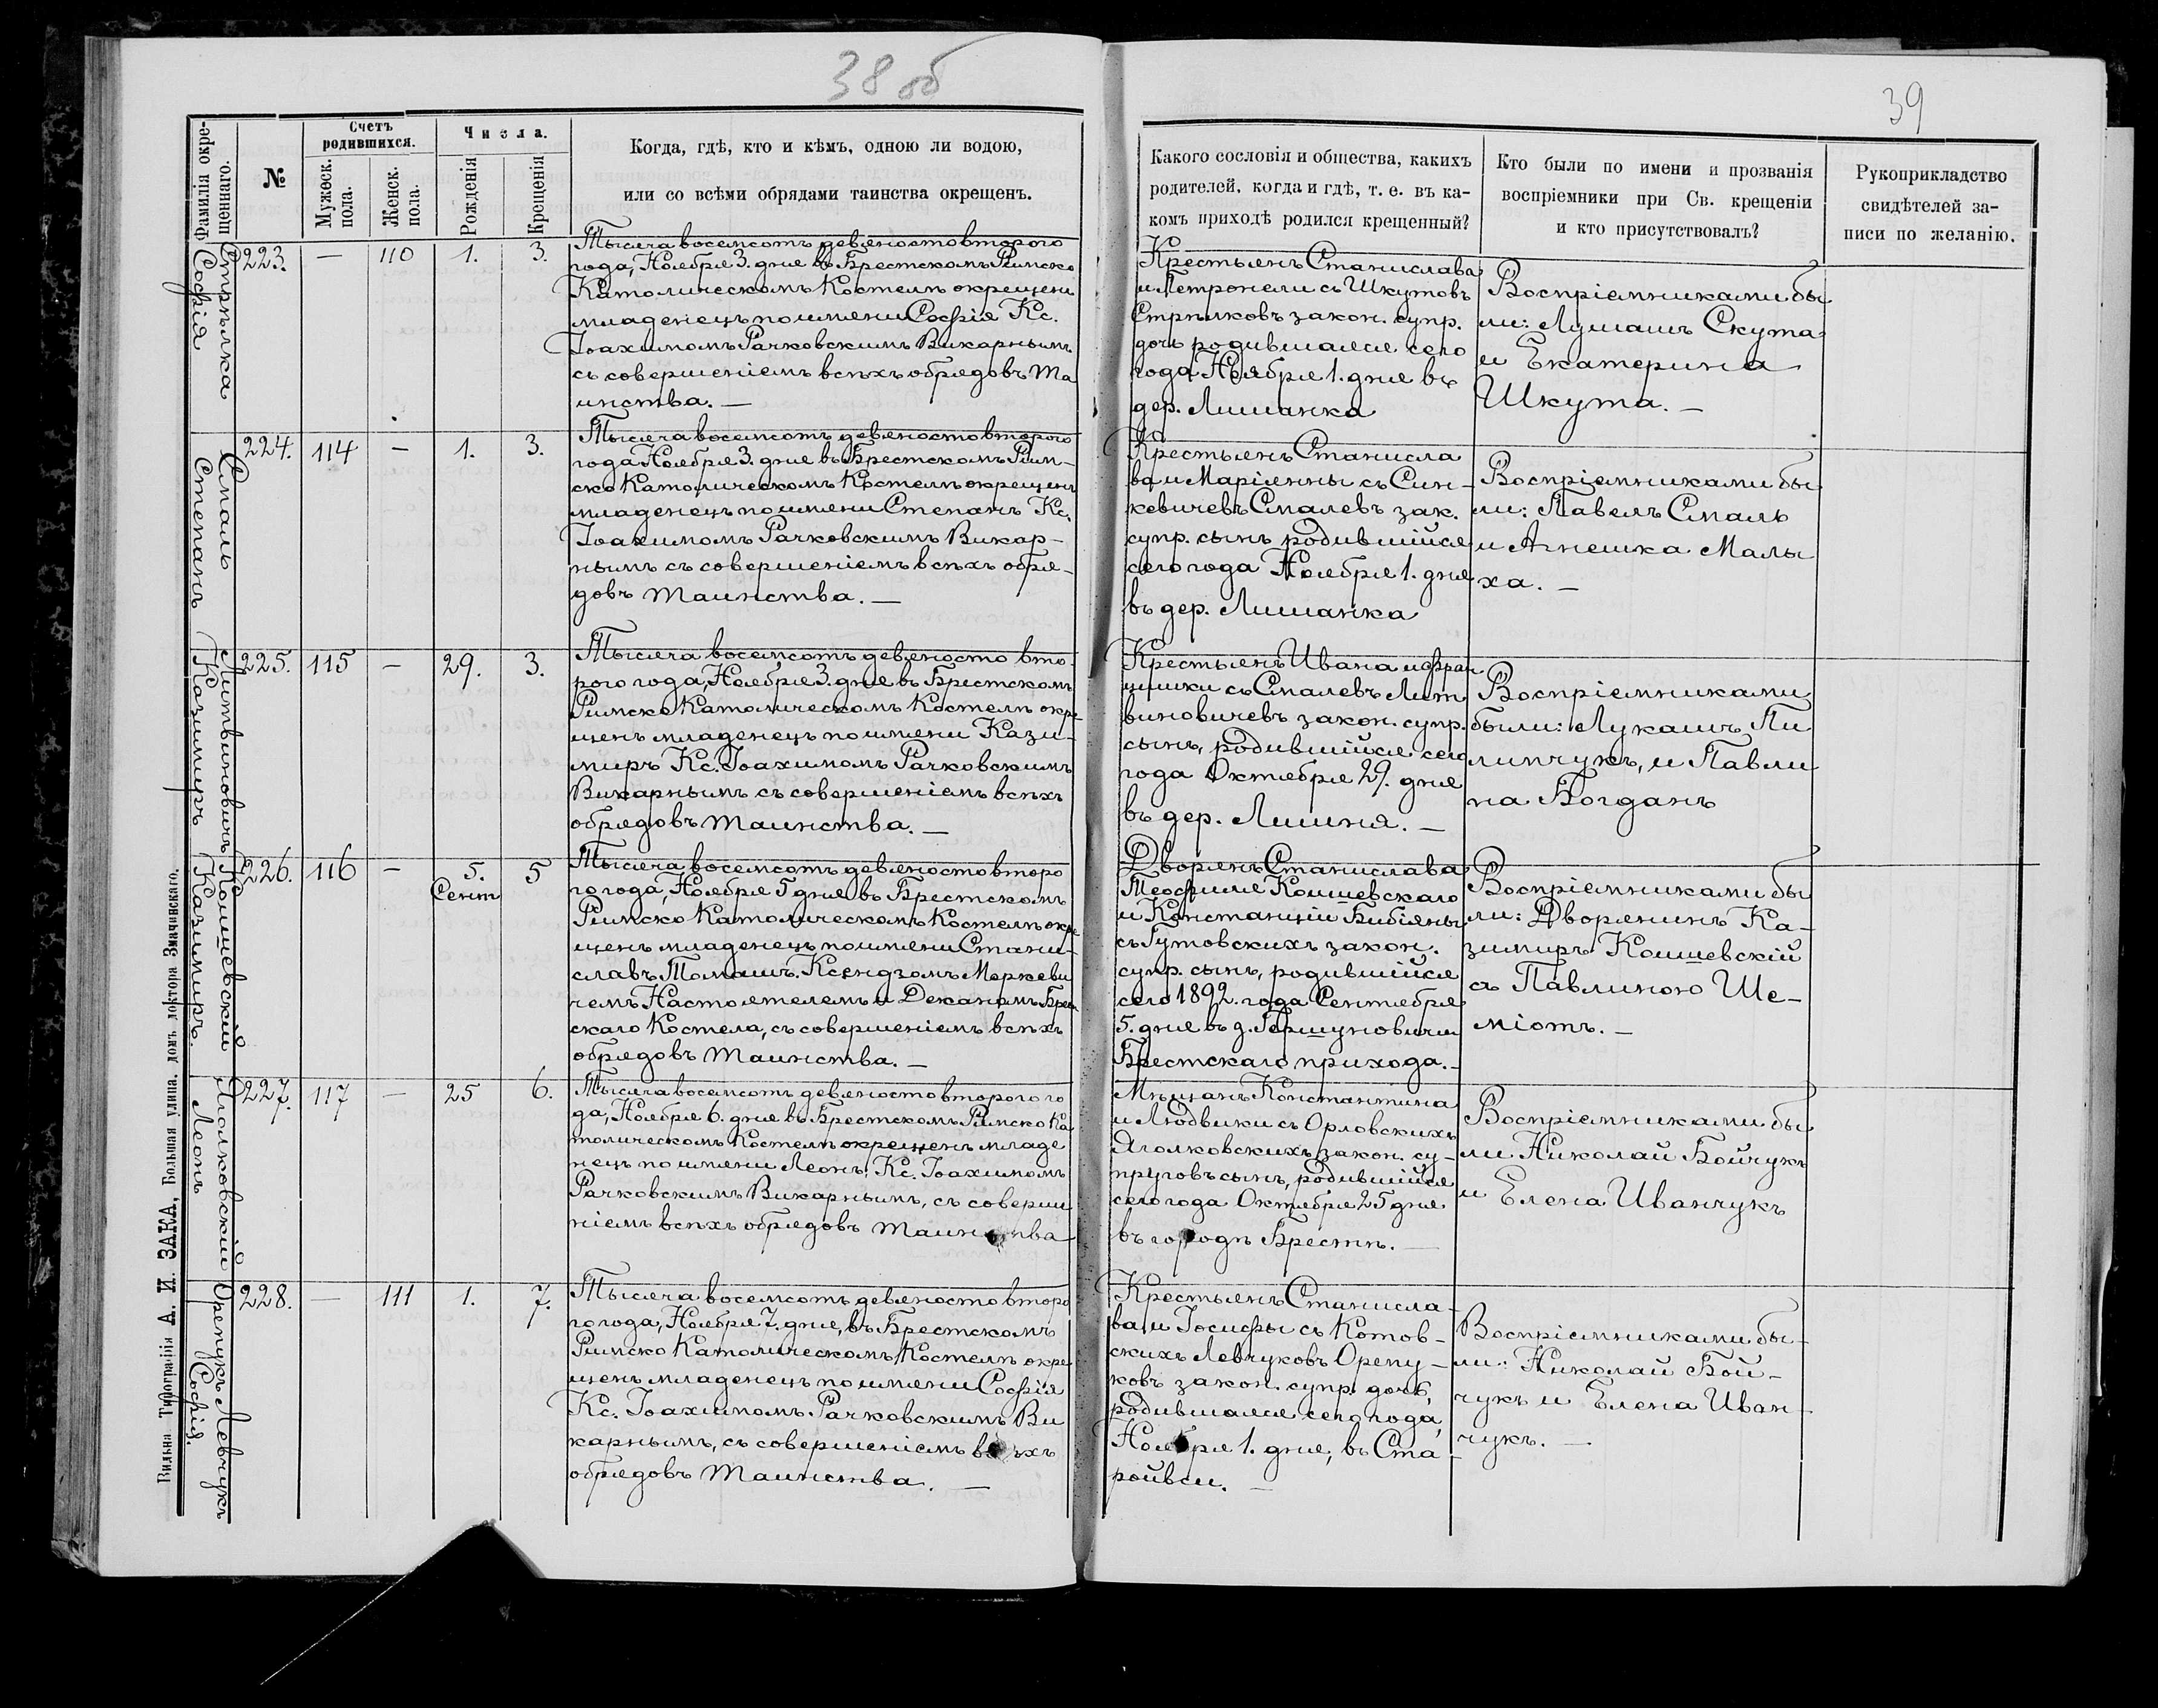 38 об
39
Фамилія окре-
щеннаго.
№
Счетъ
родившихся.
Мужеск.
пола.
Женск.
пола.
Числа.
Рожденія
Крещенія
Когда, гдѣ, кто и кѣмъ, одною ли водою,
или со всѣми обрядами таинства окрещенъ.
Какого сословія и общества, какихъ
родителей, когда и гдѣ, т. е. въ ка-
комъ приходѣ родился крещенный?
Кто были по имени и прозванія
воспріемники при Св. крещеніи
и кто присутствовалъ?
Рукоприкладство
свидѣтелей за-
писи по желанію.
Стрѣлка
Софія
223. — 110 1. 3.
Тысяча восемсотъ девяносто второго
года, Ноября 3. дня въ Брестскомъ Римско
Католическомъ Костелѣ окрещенъ
младенецъ по имени Софія Кс.
Іоахимомъ Рачковскимъ Викарнымъ
съ совершеніемъ всѣхъ обрядовъ Та
инства. —
Крестьянъ Станислава
и Петронели съ Шкутовъ
Стрѣлковъ закон. супр.
дочь родившаяся сего
года Ноября 1. дня въ
дер. Лишанка
Воспріемниками бы
ли: Лушашъ Скута
и Екатерина
Шкута. —
Смаль
Степанъ
224. 114 — 1. 3.
Тысяча восемсотъ девяносто второго
года Ноября 3. дня въ Брестскомъ Рим-
ско Католическомъ Костелѣ окрещенъ
младенецъ по имени Степанъ Кс.
Іоахимомъ Рачковскимъ Викар-
нымъ съ совершеніемъ всѣхъ обря-
довъ Таинства. —
Крестьянъ Станисла
ва и Маріянны съ Син-
кевичевъ Смалевъ зак.
супр. сынъ родившійся
сего года Ноября 1. дня
въ дер. Лишанка
Воспріемниками бы
ли: Павелъ Смаль
и Агнешка Малы
ха. —
Литвиновичъ
Казимиръ
225. 115 — 29. 3.
Тысяча восемсотъ девяносто вто
рого года, Ноября 3. дня въ Брестскомъ
Римско Католическомъ Костелѣ окре
щенъ младенецъ по имени Кази-
миръ Кс. Іоахимомъ Рачковскимъ
Викарнымъ съ совершеніемъ всѣхъ
обрядовъ Таинства. —
Крестьянъ Ивана и Фран
цишки съ Смалевъ Лит
виновичевъ закон. супр.
сынъ, родившійся сего
года Октября 29. дня
въ дер. Лишня. —
Воспріемниками
были: Лукашъ Пи
липчукъ, и Павли
на Богданъ
Кошшевскій
Казимиръ.
226. 116 — 5. 5
Сент
Тысяча восемсотъ девяносто второ
го года, Ноября 5 дня въ Брестскомъ
Римско Католическомъ Костелѣ окре
щенъ младенецъ по имени Стани-
славъ Томашъ. Ксендзомъ Меркеви
чемъ Настоятелемъ и Деканомъ Брест
скаго Костела, съ совершеніемъ всѣхъ
обрядовъ Таинства. —
Дворянъ Станислава
Теофиля Кошшевскаго
и Констанціи Бибіяны
съ Гутовскихъ закон.
супр. сынъ, родившійся
сего 1892. года Сентября
5. дня въ д. Гершуновичи
Брестскаго прихода. —
Воспріемниками бы
ли: Дворянинъ Ка-
зимиръ Кошшевскій
съ Павлиною Ше-
міотъ. —
Яголковскій
Леонъ
227. 117 — 25 6.
Тысяча восемсотъ девяносто второго го
да, Ноября 6. дня въ Брестскомъ Римско Ка
толическомъ Костелѣ окрещенъ младе
нецъ по имени Леонъ, Кс. Іоахимомъ
Рачковскимъ Викарнымъ, съ соверше
ніемъ всѣхъ обрядовъ Таинства
Мѣщанъ Константина
и Людвики съ Орловскихъ
Яголковскихъ, закон. су-
пруговъ сынъ, родившійся
сего года Октября 25 дня
въ городѣ Брестѣ. —
Воспріемниками бы
ли Николай Бойчукъ
и Елена Иванчукъ
Орепукъ Левчукъ
Софія.
228. — 111 1. 7.
Тысяча восемсотъ девяносто второ
го года, Ноября 7. дня, въ Брестскомъ
Римско Католическомъ Костелѣ окре
щенъ младенецъ по имени Софія
Кс. Іоахимомъ Рачковскимъ Ви
карнымъ, съ совершеніемъ всѣхъ
обрядовъ Таинства. —
Крестьянъ Станисла-
ва и Іосифы съ Котов-
скихъ Левчуковъ Орепу-
ковъ закон. супр. дочь,
родившаяся сего года,
Ноября 1. дня, въ Ста-
ройвси. —
Воспріемниками бы-
ли: Николай Бой-
чукъ и Елена Иван-
чукъ. —
Вильна Типографія А. И. ЗАКА, Большая улица, домъ доктора Змачинскаго.